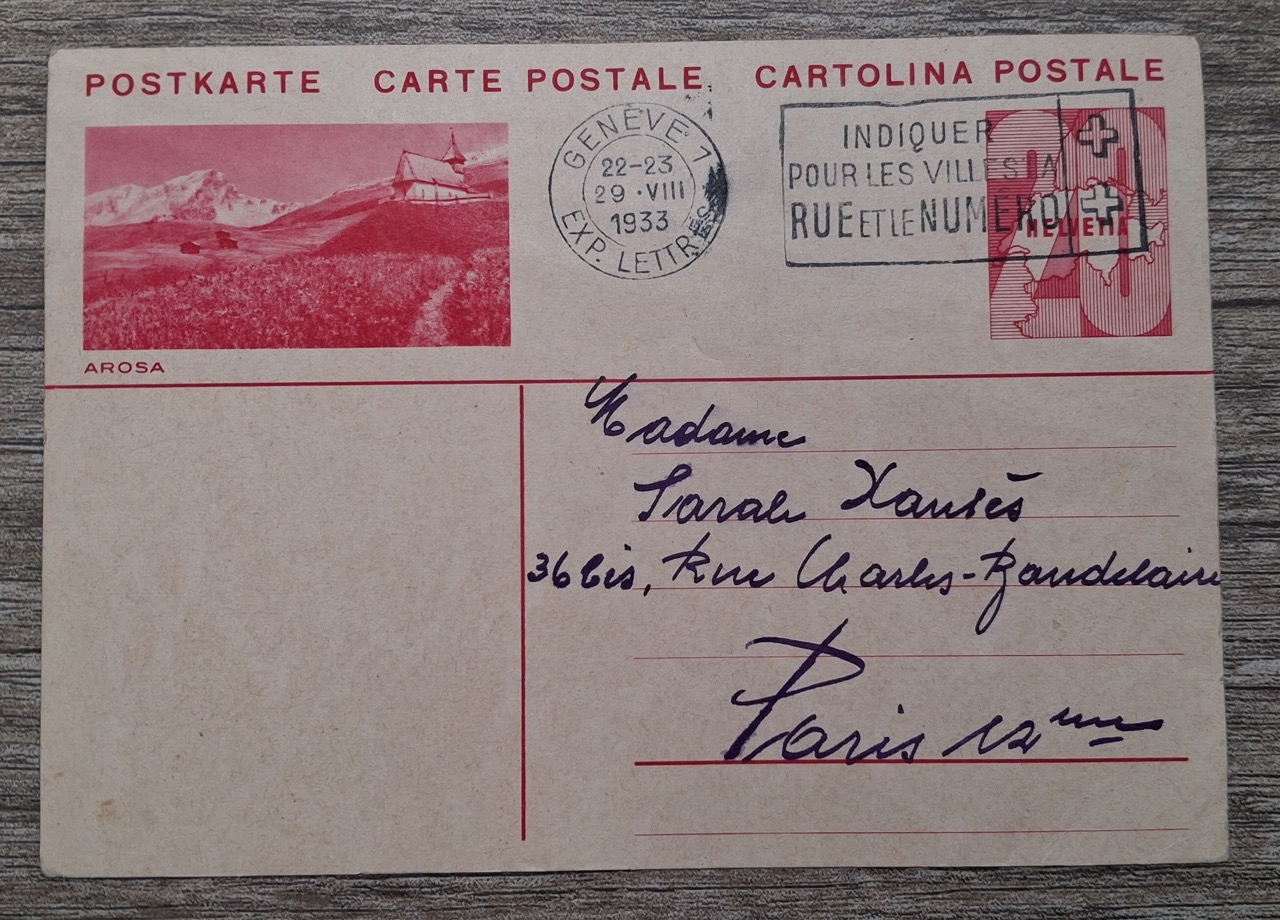 POSTKARTE CARTE POSTALE CARTOLINA POSTALE
GENÈVE 1
22-23
29·VIII
1933
EXP. LETTRES
INDIQUER
POUR LES VILLES LA
RUE ET LE NUMÉRO
20
HELVETIA
AROSA
Madame
Sarah
36 bis, Rue Charles-Baudelaire
Paris 12ème